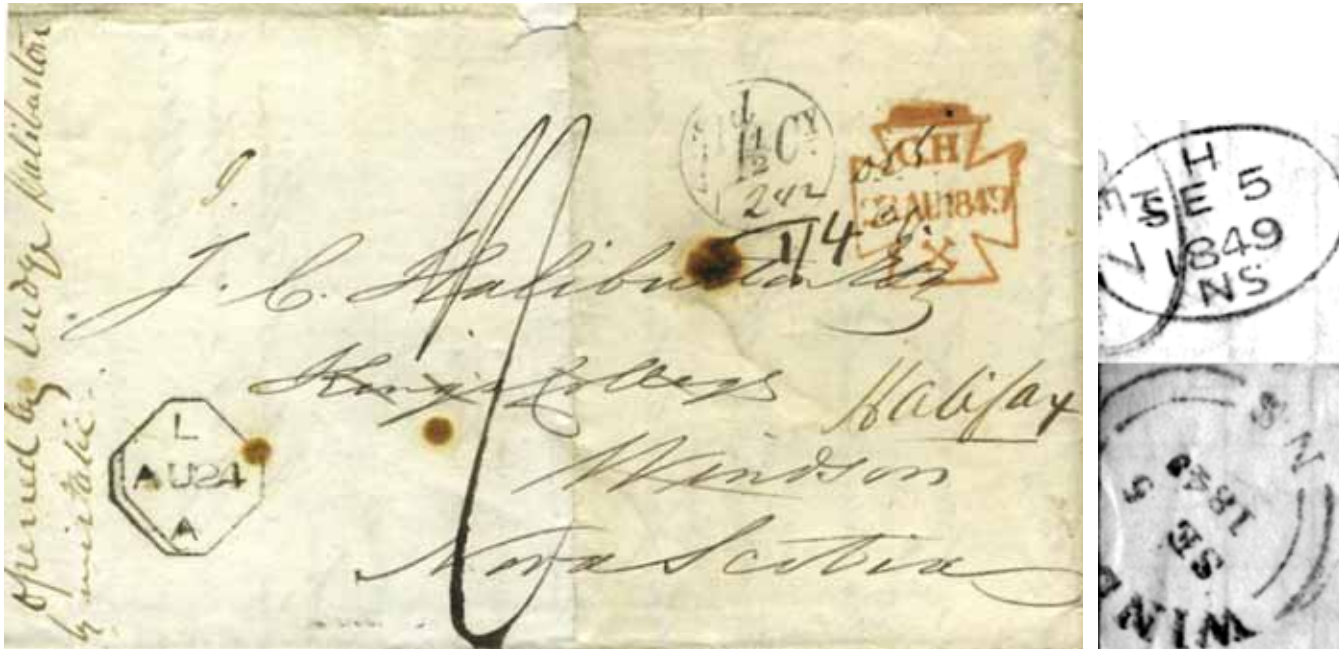 opened by Judge Haliburton
by mistake.
1½ Cy
GH
23 AU 1849
1/4
J. C. Haliburton Esq
King's College
Halifax
Windsor
Nova Scotia
L
AU 24
A
H
SE 5
1849
NS
WIND
SE 5
1849
N S